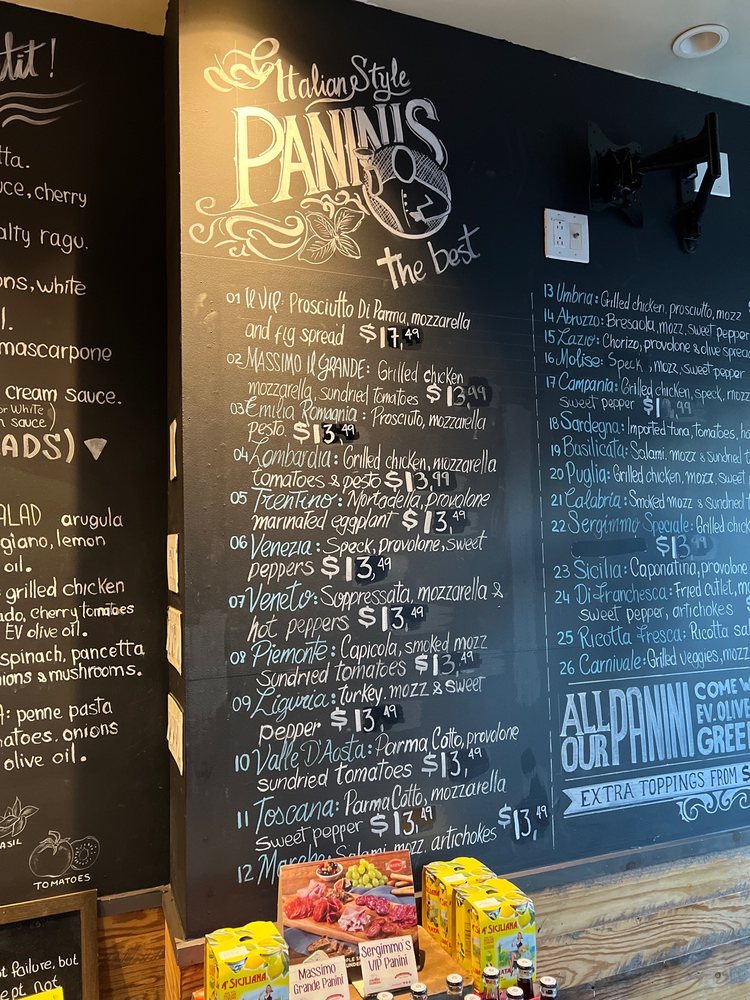 tit!
tta.
uce, cherry
alty ragu.
ons, white
l.
mascarpone
cream sauce.
or white)
n sauce)
ADS)
ALAD arugula
giano, lemon
oil.
grilled chicken
ado, cherry tomatoes
EV olive oil.
spinach, pancetta
nions & mushrooms.
A: penne pasta
matoes. onions
olive oil.
ASIL
TOMATOES
ot Failure, but
ept not
Italian Style
PANINIS
the best
01 Il VIP: Prosciutto Di Parma, mozzarella
and fig spread $17,49
02 MASSIMO Il GRANDE: Grilled chicken
mozzarella, sundried tomatoes $13,99
03 Emilia Romagnia: Prosciuto, mozzarella
pesto $13,49
04 Lombardia: Grilled chicken, mozzarella
tomatoes & pesto $13,99
05 Trentino: Nortadella, provolone
marinated eggplant $13,49
06 Venezia: Speck, provolone, sweet
peppers $13,49
07 Veneto: Soppressata, mozzarella &
hot peppers $13,49
08 Piemonte: Capicola, smoked mozz
sundried tomatoes $13,49
09 Liguria: turkey, mozz & sweet
pepper $13,49
10 Valle D'Aosta: Parma Cotto, provolone
sundried tomatoes $13,49
11 Toscana: Parma Cotto, mozzarella
sweet pepper $13,49
12 Marche: Salami, mozz, artichokes $13,49
13 Umbria: Grilled chicken, prosciutto, mozz
14 Abruzzo: Bresaola, mozz, sweet pepper
15 Lazio: Chorizo, provolone & olive spread
16 Molise: Speck, mozz, sweet pepper
17 Campania: Grilled chicken, speck, mozz
sweet pepper
18 Sardegna: Imported tuna, tomatoes, ho
19 Basilicata: Salami, mozz & sundried t
20 Puglia: Grilled chicken, mozz, sweet
21 Calabria: Smoked mozz & sundried t
22 Sergimmo Speciale: Grilled chick
23 Sicilia: Caponatina, provolone
24 Di Franchesca: Fried cutlet, mo
sweet pepper, artichokes $
25 Ricotta Fresca: Ricotta sal
26 Carnivale: Grilled veggies, mozz
ALL OUR PANINI COME W
EV. OLIVE
GREE
EXTRA TOPPINGS FROM $
A' SICILIANA
A' SICILIANA
Massimo
Grande Panini
Sergimmo's
VIP Panini